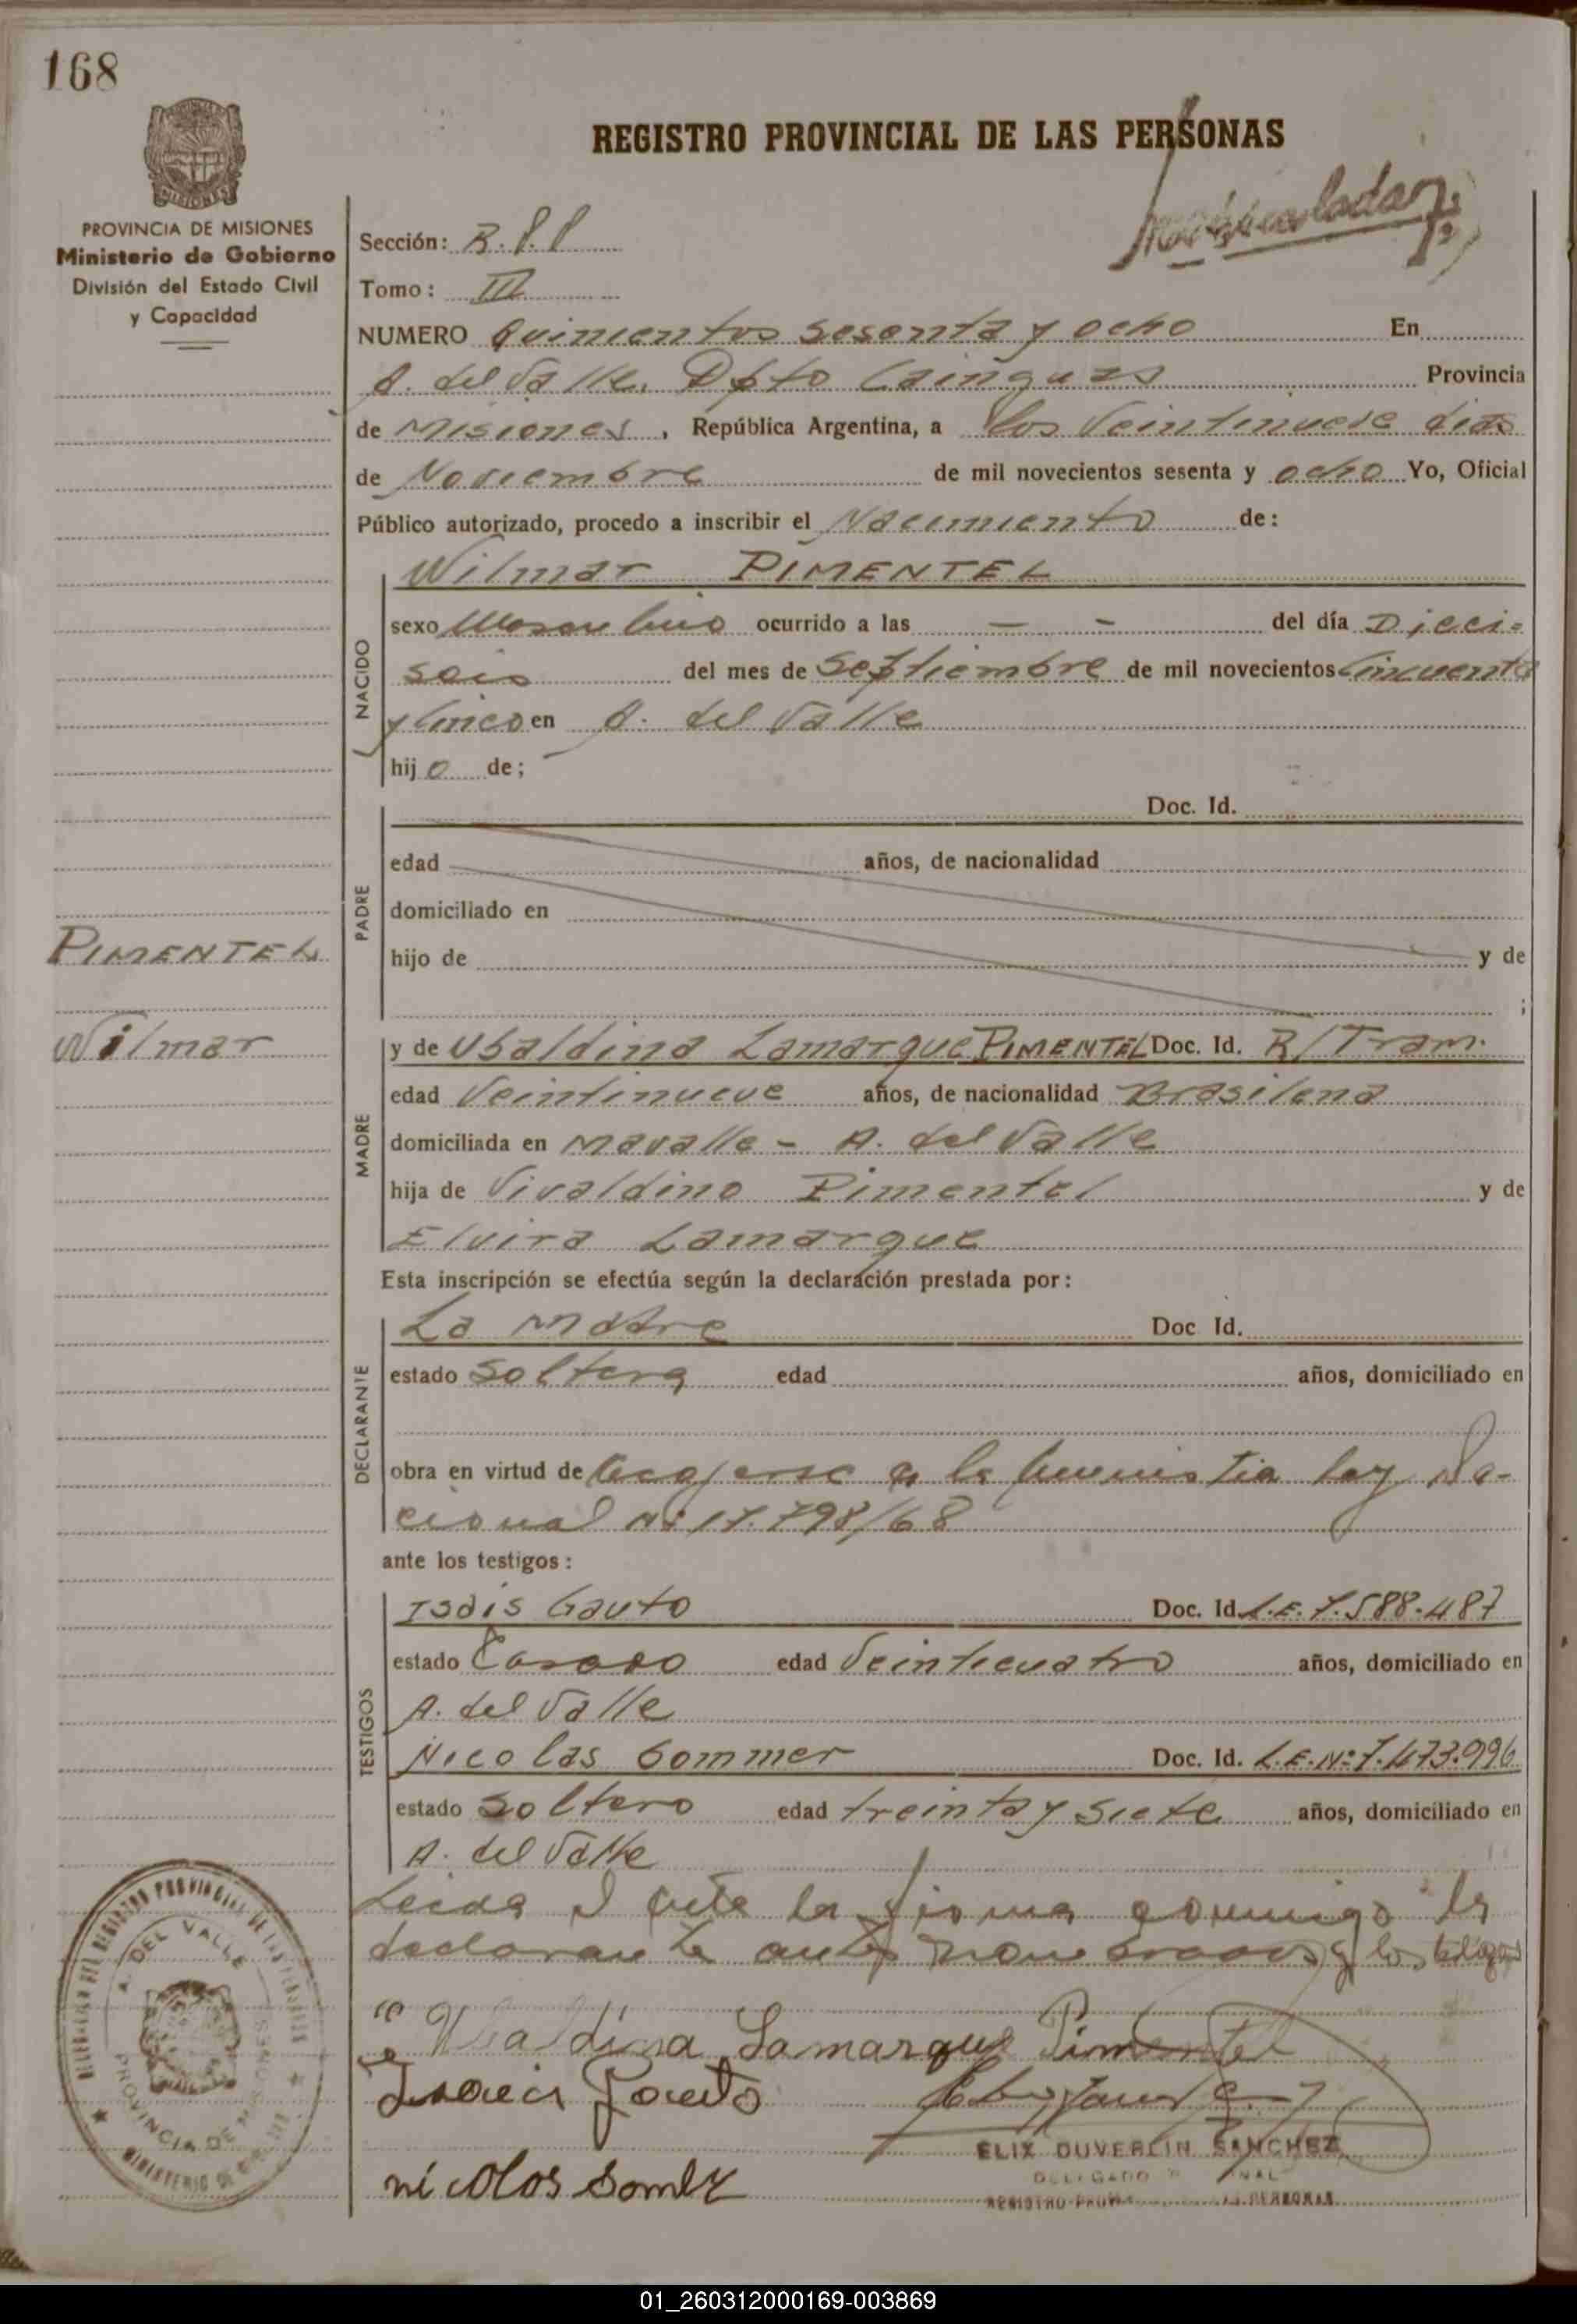 168
REGISTRO PROVINCIAL DE LAS PERSONAS
PROVINCIA DE MISIONES
Ministerio de Gobierno
División del Estado Civil
y Capacidad
Sección:
Tomo: III
NUMERO Quinientos sesenta y ocho En
A. del Valle. Dpto Cainguas Provincia
de Misiones, República Argentina, a los Veintinueve dias
de Noviembre de mil novecientos sesenta y ocho Yo, Oficial
Público autorizado, procedo a inscribir el Nacimiento de:
NACIDO
Wilmar PIMENTEL
sexo Masculino ocurrido a las — - del día Dieci=
seis del mes de Septiembre de mil novecientos Cincuenta
y Cinco en A. del Valle
hijo de;
PADRE
Doc. Id.
edad años, de nacionalidad
domiciliado en
hijo de y de
;
PIMENTEL
Wilmar
MADRE
y de Ubaldina Lamarque PIMENTEL Doc. Id. R/Tram.
edad Veintinueve años, de nacionalidad Brasilena
domiciliada en Mavalle - A. del Valle
hija de Vivaldino Pimentel y de
Elvira Lamarque
Esta inscripción se efectúa según la declaración prestada por:
DECLARANTE
La Madre Doc Id.
estado Soltera edad años, domiciliado en
obra en virtud de acojerse a la amnistia ley Na-
cional Nº 17.798/68
ante los testigos:
TESTIGOS
Isais Gauto Doc. Id. L.E. 7.588.487
estado Casado edad Veinticuatro años, domiciliado en
A. del Valle
Nicolas Sommer Doc. Id. L.E. Nº 7.473.996
estado Soltero edad treinta y siete años, domiciliado en
A. del Valle
Leida el acta la firma conmigo la
declarante antes nombrados y los testigos
Ubaldina Lamarque Pimentel
Isaeis Gauto
ELIX DUVERLIN SANCHEZ
nicolos
A. DEL VALLE
PROVINCIA DE MISIONES
01_260312000169-003869